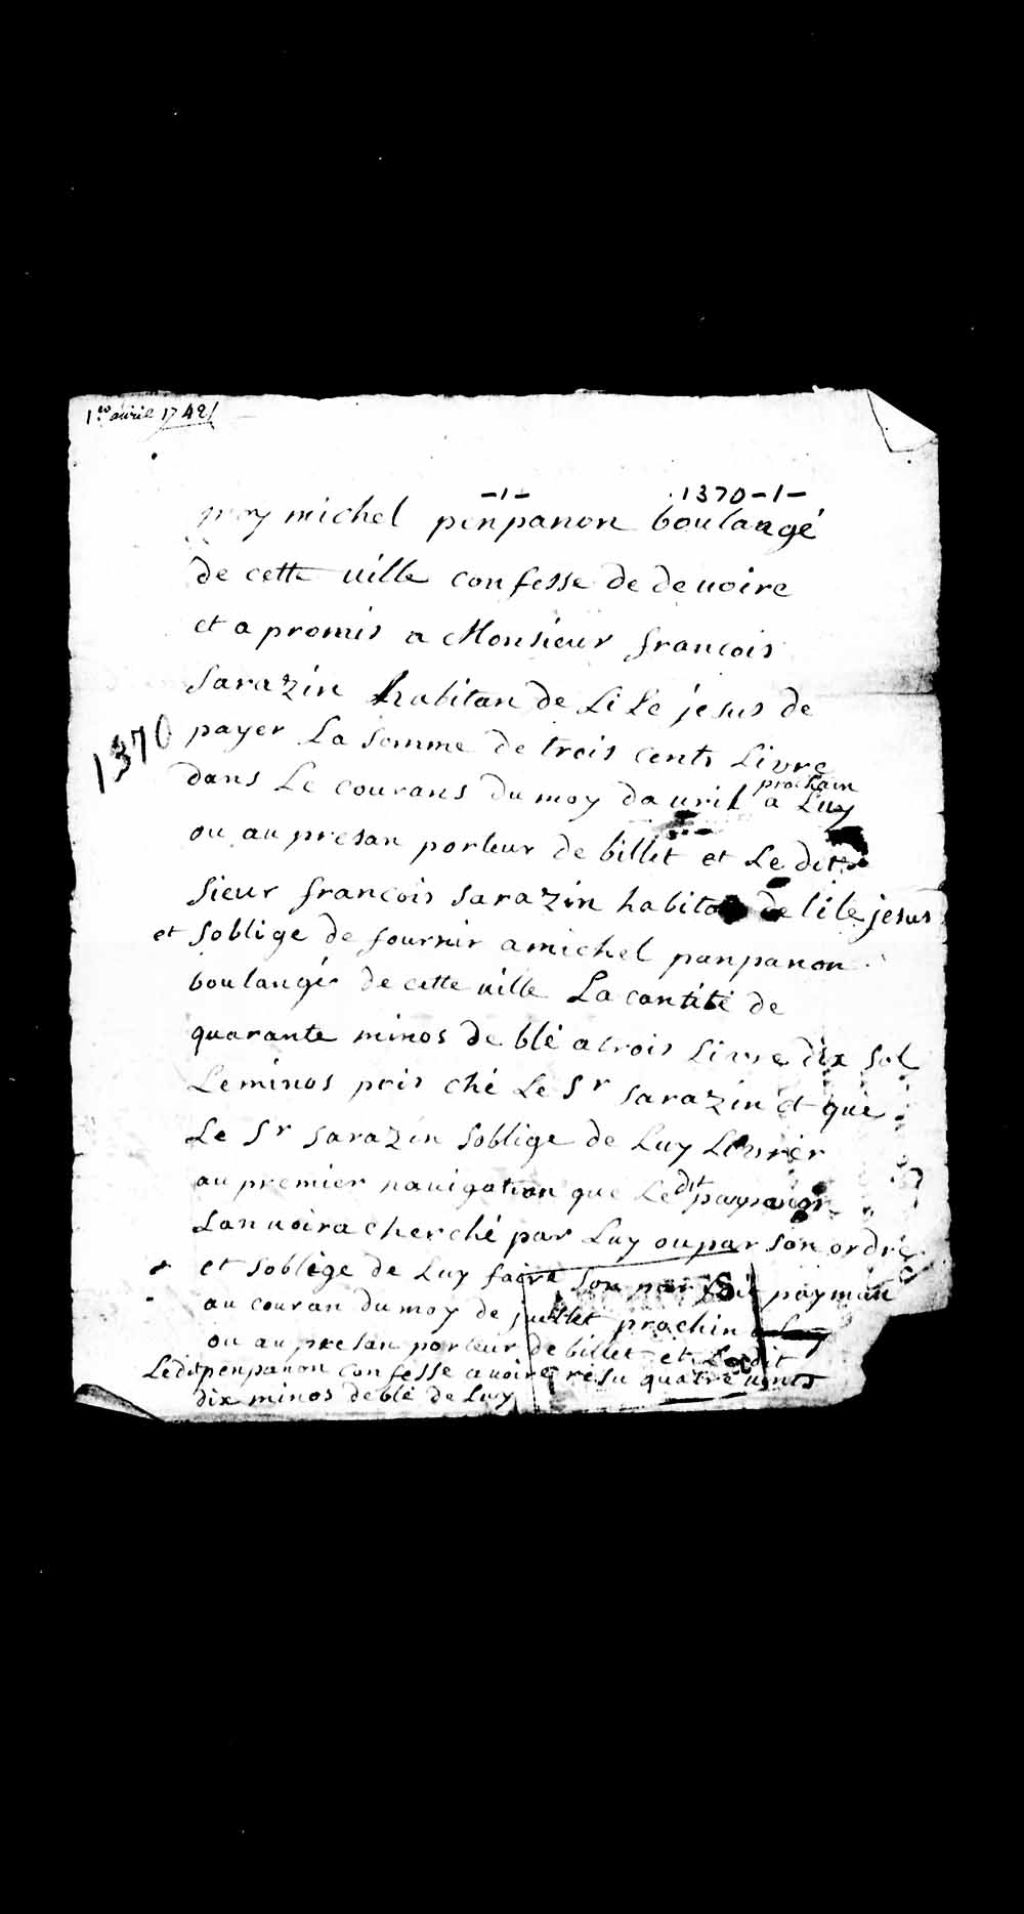 1er avril 1742
-1- 1370-1-
moy michel penpanon boulangé
de cette uille confesse de deuoire
et a promis a Monsieur francois
sarazin habitan de Li Le jesus de
1370
payer La somme de trois cents Livre
prochain
dans Le courans du moy dauril a Luy
ou au presan porteur de billet et Le dit
sieur francois sarazin habitan de lile jesus
et soblige de fournir a michel panpanon
boulangér de cette uille La cantité de
quarante minos de blé a trois Livre dix sol
Le minos pris ché Le Sr sarazin et que
Le Sr sarazin soblige de Luy Liurér
au premier nauigation que Ledit
Lanuoira cherché par Luy ou par son ordre
et soblige de Luy faire son payman
au couran du moy de juillet prochin a Luy
ou au presan porteur de billet et Ledit
Ledit penpanon confesse auoire resu quatre uints
dix minos de blé de Luy